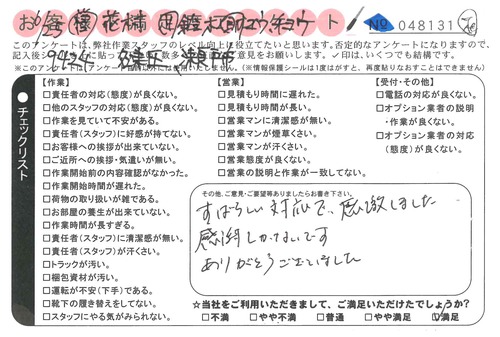 No 048131
このアンケートは、弊社作業スタッフのレベル向上に役立てたいと思います。否定的なアンケートになりますので、
※このアンケートは
(※情報保護シールは1度はがすと、再度貼りなおすことはできません)
チェックリスト
【作業】
□責任者の対応(態度)が良くない。
□他のスタッフの対応(態度)が良くない。
□作業を見ていて不安がある。
□責任者(スタッフ)に好感が持てない。
□お客様への挨拶が出来ていない。
□ご近所への挨拶・気遣いが無い。
□作業開始前の内容確認がなかった。
□作業開始時間が遅れた。
□荷物の取り扱いが雑である。
□お部屋の養生が出来ていない。
□作業時間が長すぎる。
□責任者(スタッフ)に清潔感が無い。
□責任者(スタッフ)が汗くさい。
□トラックが汚い。
□梱包資材が汚い。
□運転が不安(下手)である。
□靴下の履き替えをしてない。
□スタッフにやる気がみられない。
【営業】
□見積もり時間に遅れた。
□見積もり時間が長い。
□営業マンに清潔感が無い。
□営業マンが煙草くさい。
□営業マンが汗くさい。
□営業態度が良くない。
□営業の説明と作業が一致してない。
【受付・その他】
□電話の対応が良くない。
□オプション業者の説明
・作業が良くない。
□オプション業者の対応
(態度)が良くない。
その他、ご意見・ご要望等ありましたらお書き下さい。
すばらしい対応で、感激しました
感謝しかないです
ありがとうございました
☆当社をご利用いただきまして、ご満足いただけたでしょうか?
□不満 □やや不満 □普通 □やや満足 ☑満足